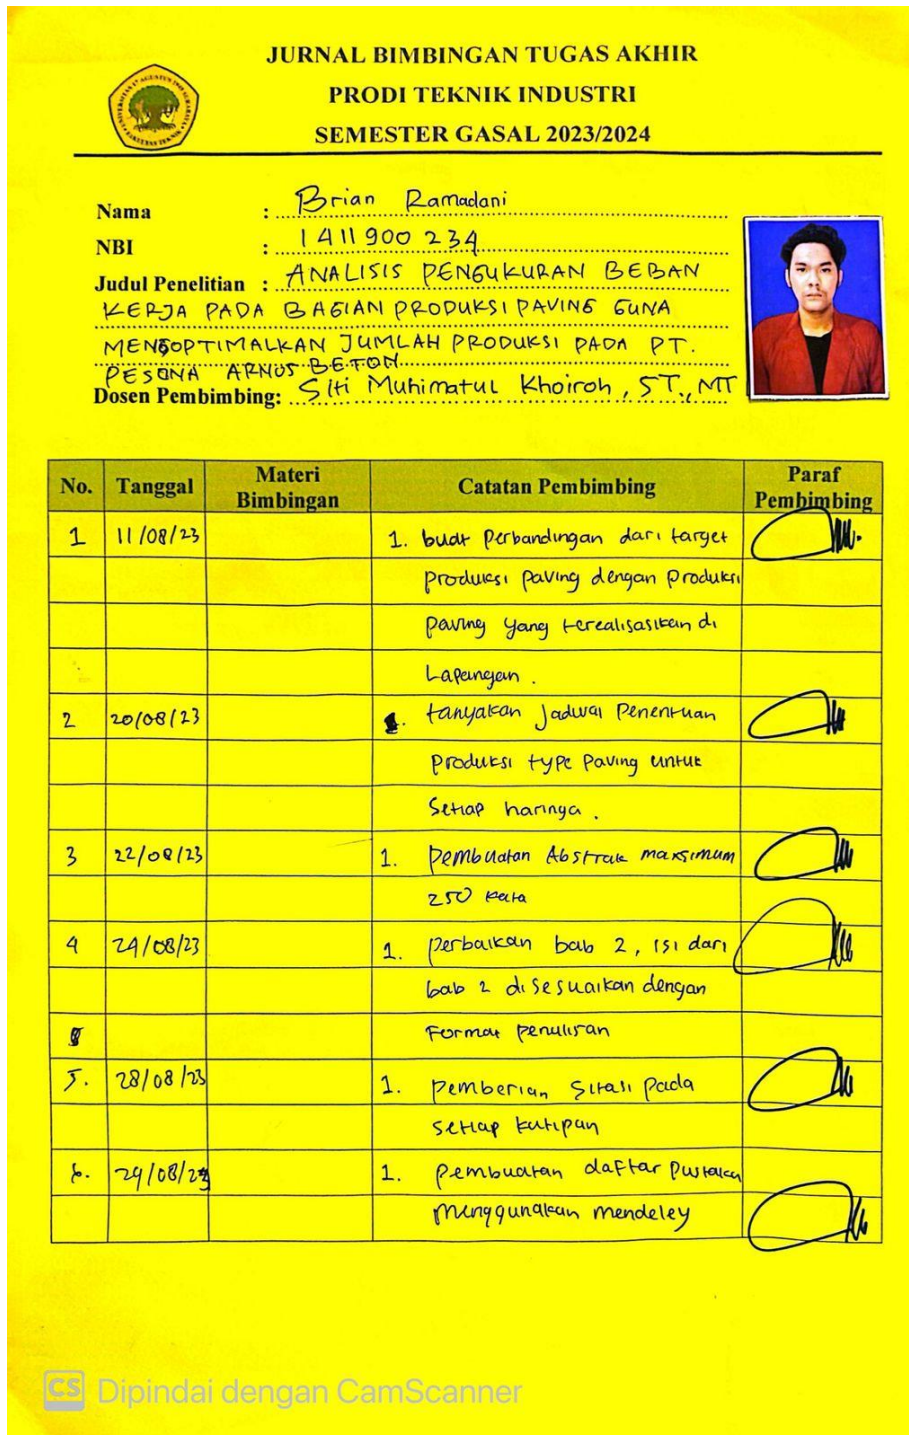 JURNAL BIMBINGAN TUGAS AKHIR
PRODI TEKNIK INDUSTRI
SEMESTER GASAL 2023/2024
UNIVERSITAS 17 AGUSTUS 1945 SURABAYA
FAKULTAS TEKNIK
Nama : Brian Ramadani
NBI : 1411900234
Judul Penelitian : ANALISIS PENGUKURAN BEBAN
KERJA PADA BAGIAN PRODUKSI PAVING GUNA
MENGOPTIMALKAN JUMLAH PRODUKSI PADA PT.
PESONA ARNOS BETON
Dosen Pembimbing: Siti Muhimatul Khoiroh, ST., MT
No. Tanggal Materi Bimbingan Catatan Pembimbing Paraf Pembimbing
1 11/08/23 1. buat Perbandingan dari target
Produksi paving dengan Produksi
paving yang terealisasikan di
Lapangan.
2 20/08/23 1. tanyakan Jadwal Penentuan
Produksi type Paving untuk
Setiap harinya.
3 22/08/23 1. Pembuatan Abstrak maksimum
250 kata
4 24/08/23 1. Perbaikan bab 2, isi dari
bab 2 disesuaikan dengan
Format Penulisan
5. 28/08/23 1. Pemberian Sitasi pada
Setiap kutipan
6. 29/08/23 1. Pembuatan daftar Pustaka
Menggunakan mendeley
CS Dipindai dengan CamScanner